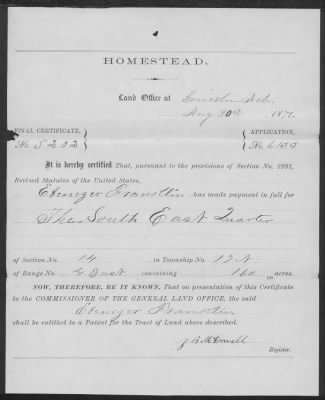 HOMESTEAD.
Land Office at Lincoln Neb.
Aug. 30th, 187
FINAL CERTIFICATE, APPLICATION,
No. 5202 No. 6155
It is hereby certified That, pursuant to the provisions of Section No. 2291,
Revised Statutes of the United States,
Ebenezer has made payment in full for
The South East Quarter
of Section No. 14 in Township No. 17 N
of Range No. 4 East containing 160 acres.
NOW, THEREFORE, BE IT KNOWN, That on presentation of this Certificate
to the COMMISSIONER OF THE GENERAL LAND OFFICE, the said
Ebenezer
shall be entitled to a Patent for the Tract of Land above described.
J B McDowell
Register.